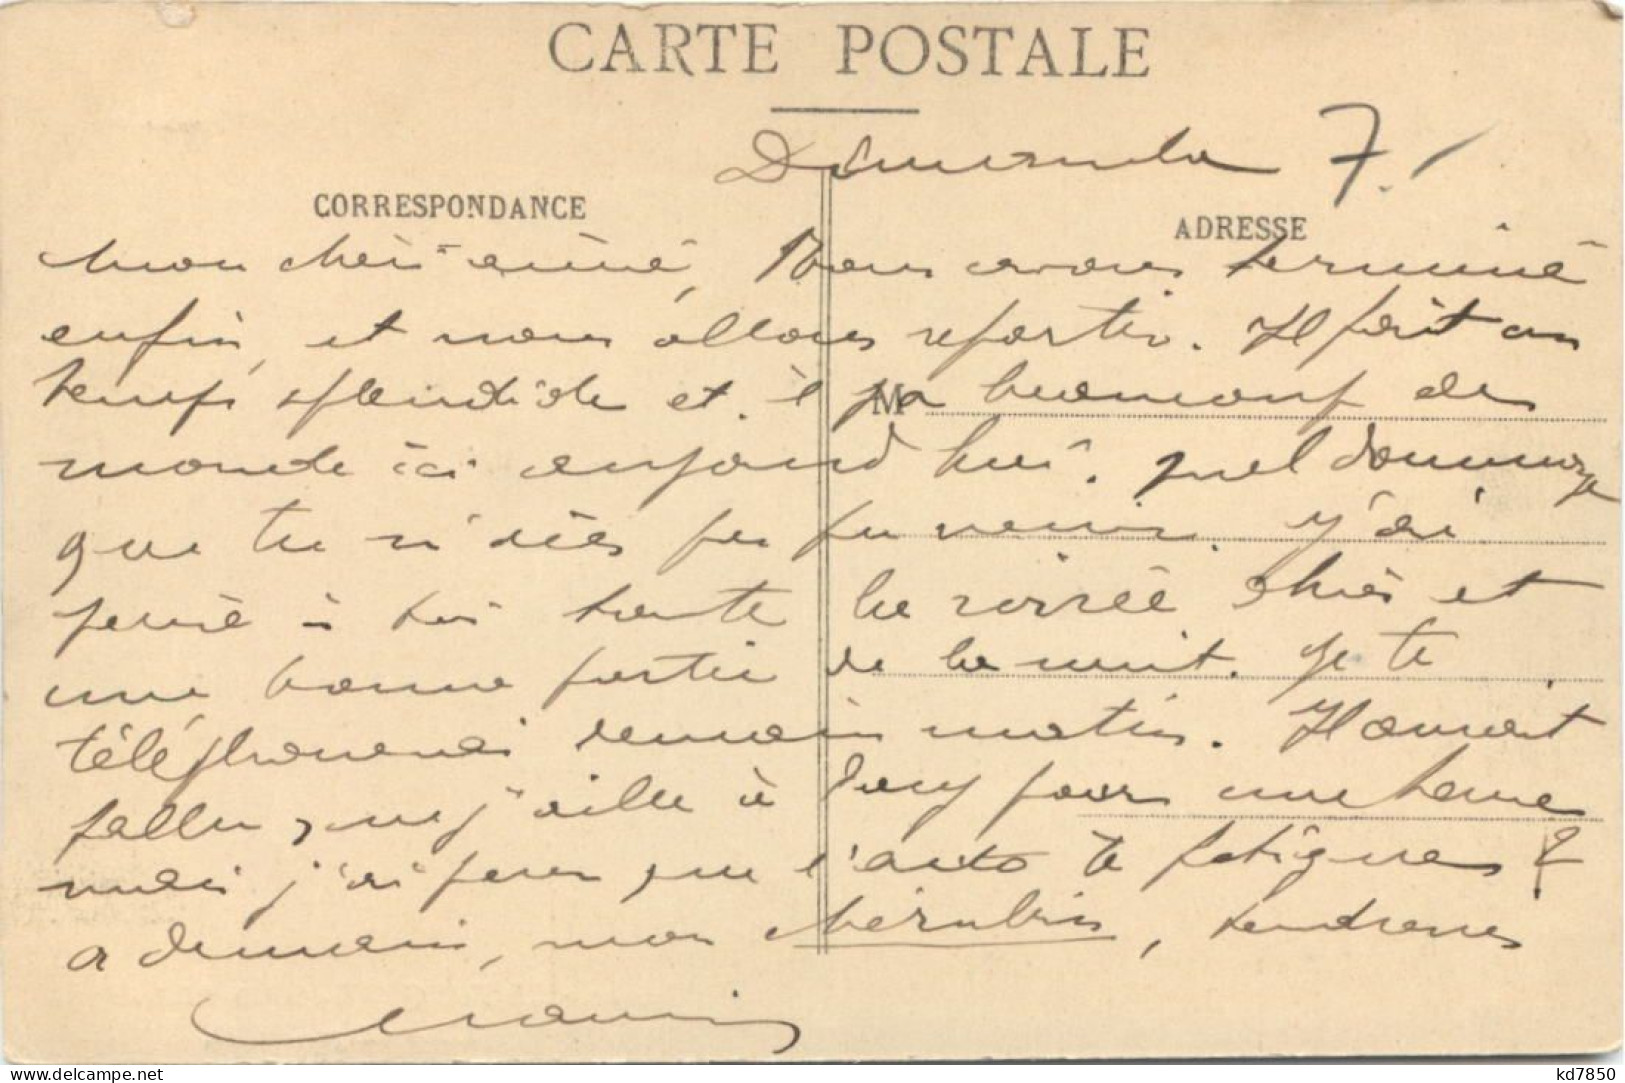 CARTE POSTALE
Dimanche 7.
CORRESPONDANCE
ADRESSE
Mon chéri aimé, Nous avons terminé
enfin, et nous allons repartir. Il fait un
temps splendide et il y a beaucoup de
M
monde ici aujourd'hui. Quel dommage
que tu n'aies pas pu venir. J'ai
pensé à toi toute la soirée d'hier et
une bonne partie de la nuit. Je te
téléphonerai demain matin. Il aurait
fallu que j'aille à pour une heure
mais j'ai peur que l'auto te fatigue &
a demain, mon chérubin, tendresses
delcampe.net
kd7850